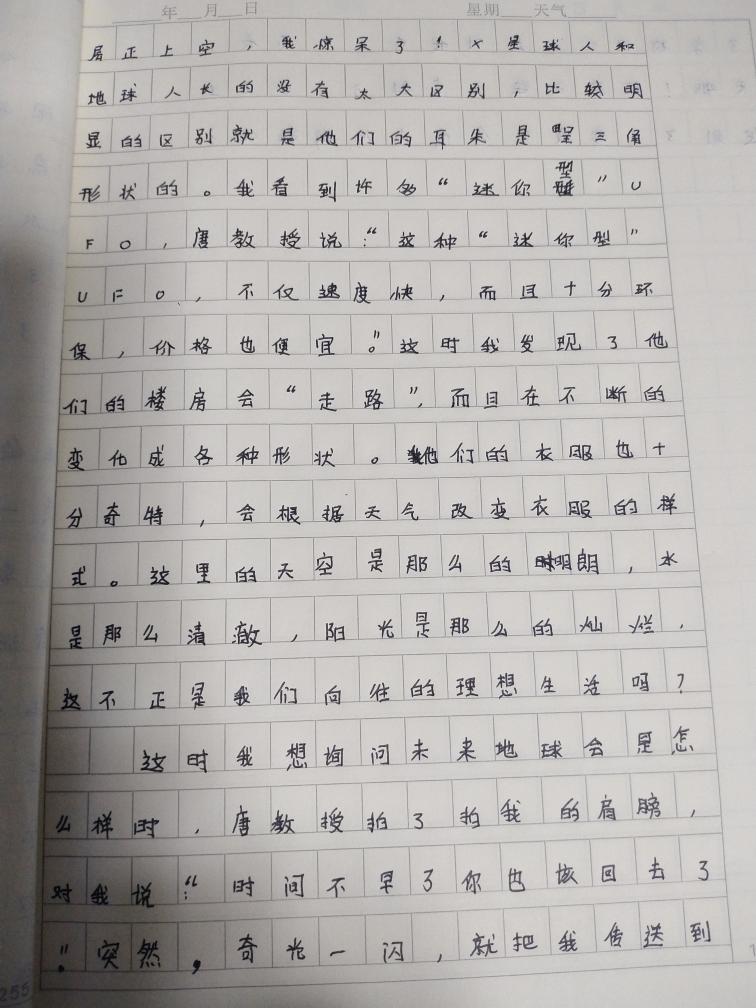 年 月 日 星期 天气
居正上空，我惊呆了！X星球人和
地球人长的没有太大区别，比较明
显的区别就是他们的耳朵是呈三角
形状的。我看到许多“迷你型”U
FO，唐教授说：“这种“迷你型”
UFO，不仅速度快，而且十分环
保，价格也便宜。”这时我发现了他
们的楼房会“走路”，而且在不断的
变化成各种形状。他们的衣服也十
分奇特，会根据天气改变衣服的样
式。这里的天空是那么的明朗，水
是那么清澈，阳光是那么的灿烂，
这不正是我们向往的理想生活吗？
这时我想询问未来地球会是怎
么样时，唐教授拍了拍我的肩膀，
对我说：“时间不早了你也该回去了
！”突然，奇光一闪，就把我传送到
255